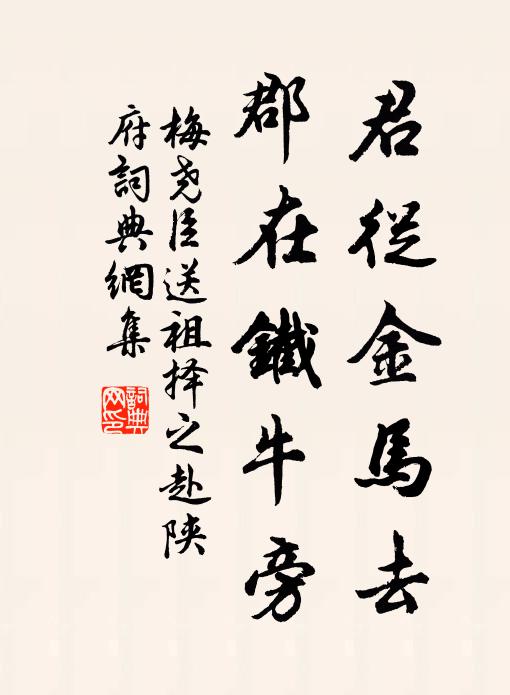 君從金馬去
郡在鐵牛旁
梅尧臣送祖择之赴陕
府詞典網集
詞典
网印